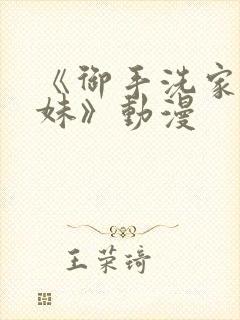 《御手洗家
妹》動漫
王荣琦